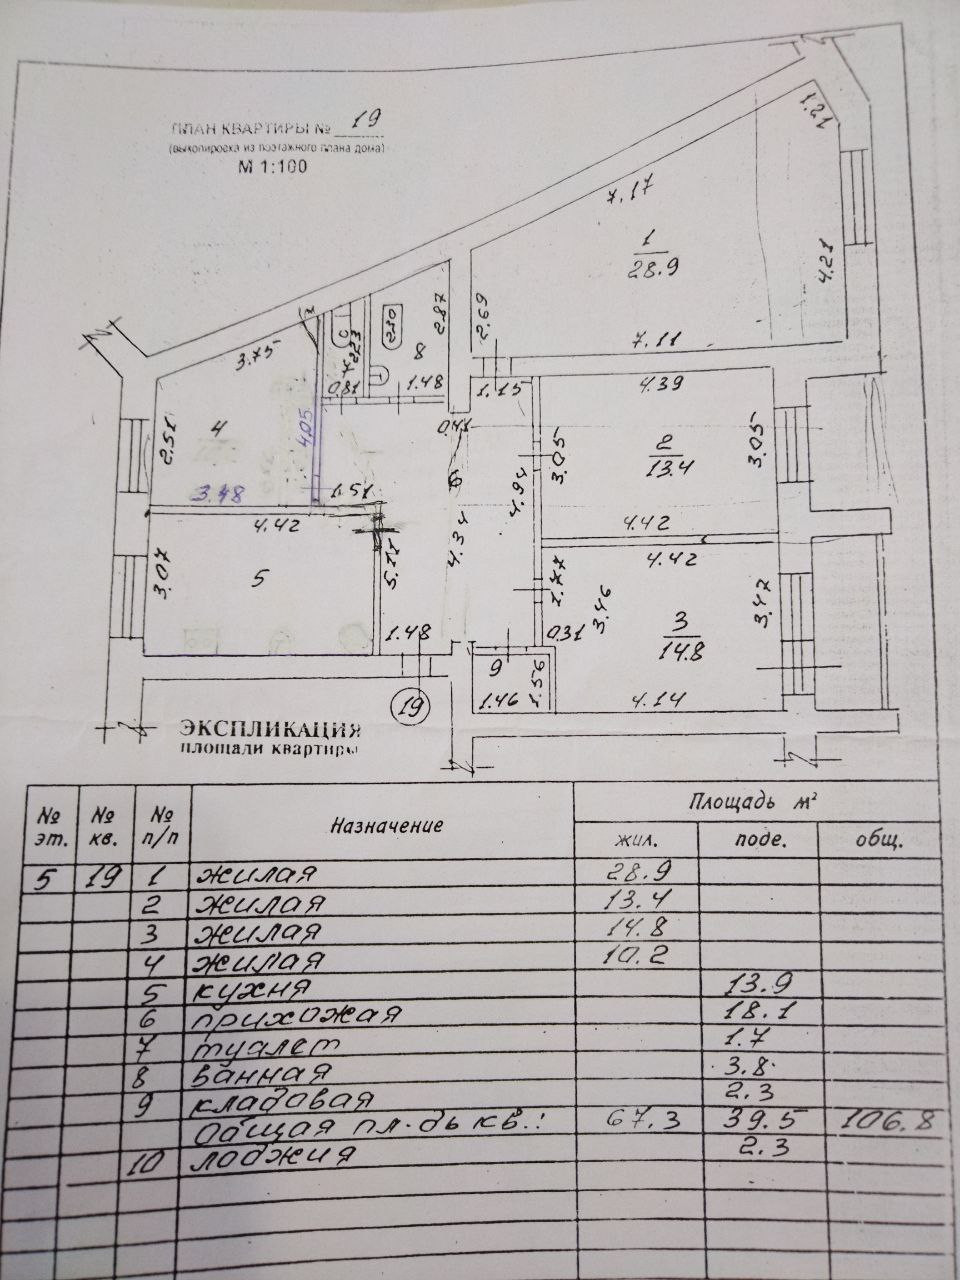 ПЛАН КВАРТИРЫ № 19
(выкопировка из поэтажного плана дома)
М 1:100
1.21
7.17
1
28.9
4.21
2.69
7.11
2.87
230
8
1.48
С
2.23
0.81
3.75
4
2.51
4.05
3.48
1.51
1.15
0.41
4.39
2
13.4
3.05
3.05
4.42
6
4.94
4.34
4.42
5
3.07
5.11
1.48
4.42
1.77
3.46
3
14.8
3.47
0.31
4.14
9
1.46
1.56
19
ЭКСПЛИКАЦИЯ
площади квартиры
№ эт. № кв. № п/п Назначение Площадь м²
жил. подс. общ.
5 19 1 жилая 28.9
2 жилая 13.4
3 жилая 14.8
4 жилая 10.2
5 кухня 13.9
6 прихожая 18.1
7 туалет 1.7
8 ванная 3.8
9 кладовая 2.3
Общая пл-дь кв.: 67.3 39.5 106.8
10 лоджия 2.3